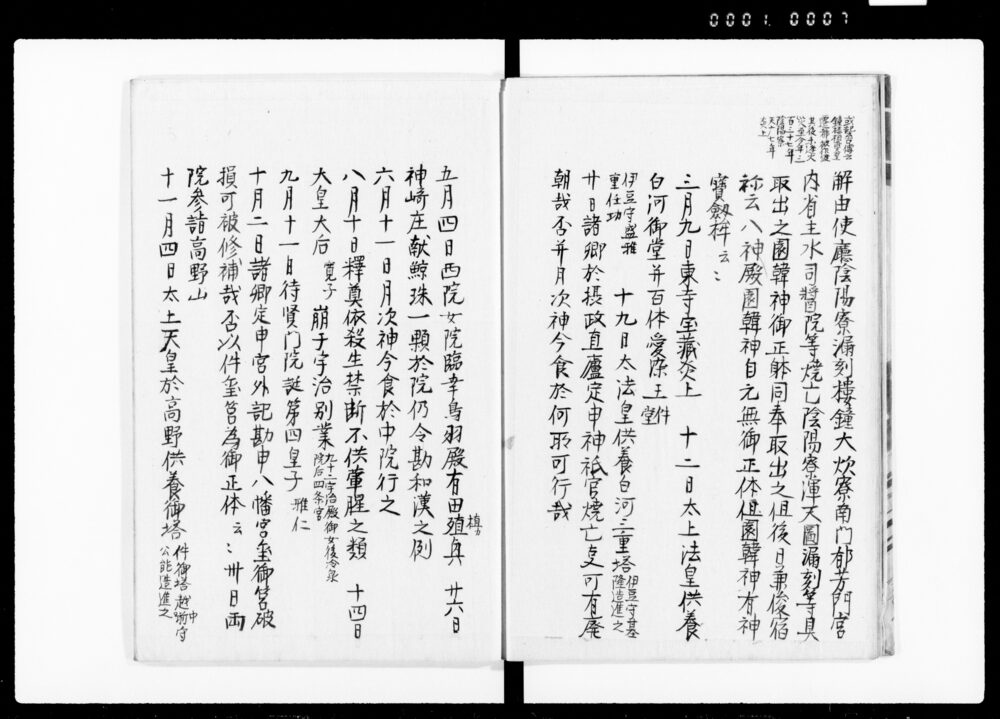 0001 0007
鐘楼
百二十七年
陰陽寮
天下七年
炎上
解由使廳陰陽寮漏刻樓鐘大炊寮南門郁芳門宮
内省主水司醤院等焼亡陰陽寮渾天圖漏刻等具
取出之園韓神御正躰同奉取出之但後日兼俊宿
祢云八神殿園韓神自元無御正体但園韓神有神
寶劔桙云〻
三月九日東寺宝蔵炎上 十二日太上法皇供養
白河御堂并百体愛染王 件堂
伊豆守盛雅
重任功 十九日太法皇供養白河三重塔 伊豆守基
隆造進之
廿日諸卿於摂政直廬定申神祇官焼亡支可有廃
朝哉否并月次神今食於何所可行哉
五月四日西院女院臨幸鳥羽殿有田殖興 廿六日
神崎庄献鯨珠一顆於院仍令勘和漢之例
六月十一日月次神今食於中院行之
八月十日釋奠依殺生禁断不供葷腥之類 十四日
大皇大后 寛子 崩于宇治別業 九十二宇治殿御女後冷泉
院后四条宮
九月十一日待賢门院誕第四皇子 雅仁
十月二日諸卿定申宮外記勘申八幡宮玺御筥破
損可被修補哉否以件玺筥為御正体云〻 卅日両
院参詣高野山
十一月四日太上天皇於高野供養御塔 件御塔越前守
中
公能造進之